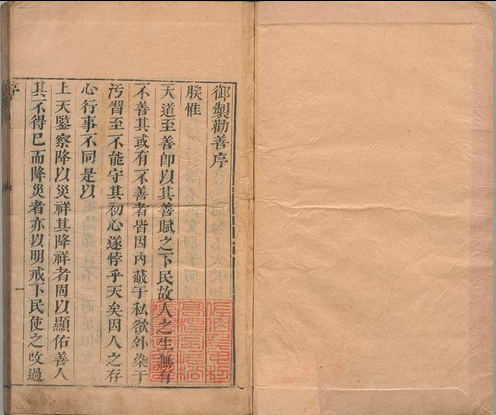 御製勸善序
朕惟
天道至善卽以其善賦之下民故人之生無有
不善其或有不善者皆因內蔽于私欲外染于
污習至不能守其初心遂悖乎天矣因人之存
心行事不同是以
上天鑒察降以災祥其降祥者固以顯佑善人
其不得已而降災者亦以明戒下民使之改過
序
一